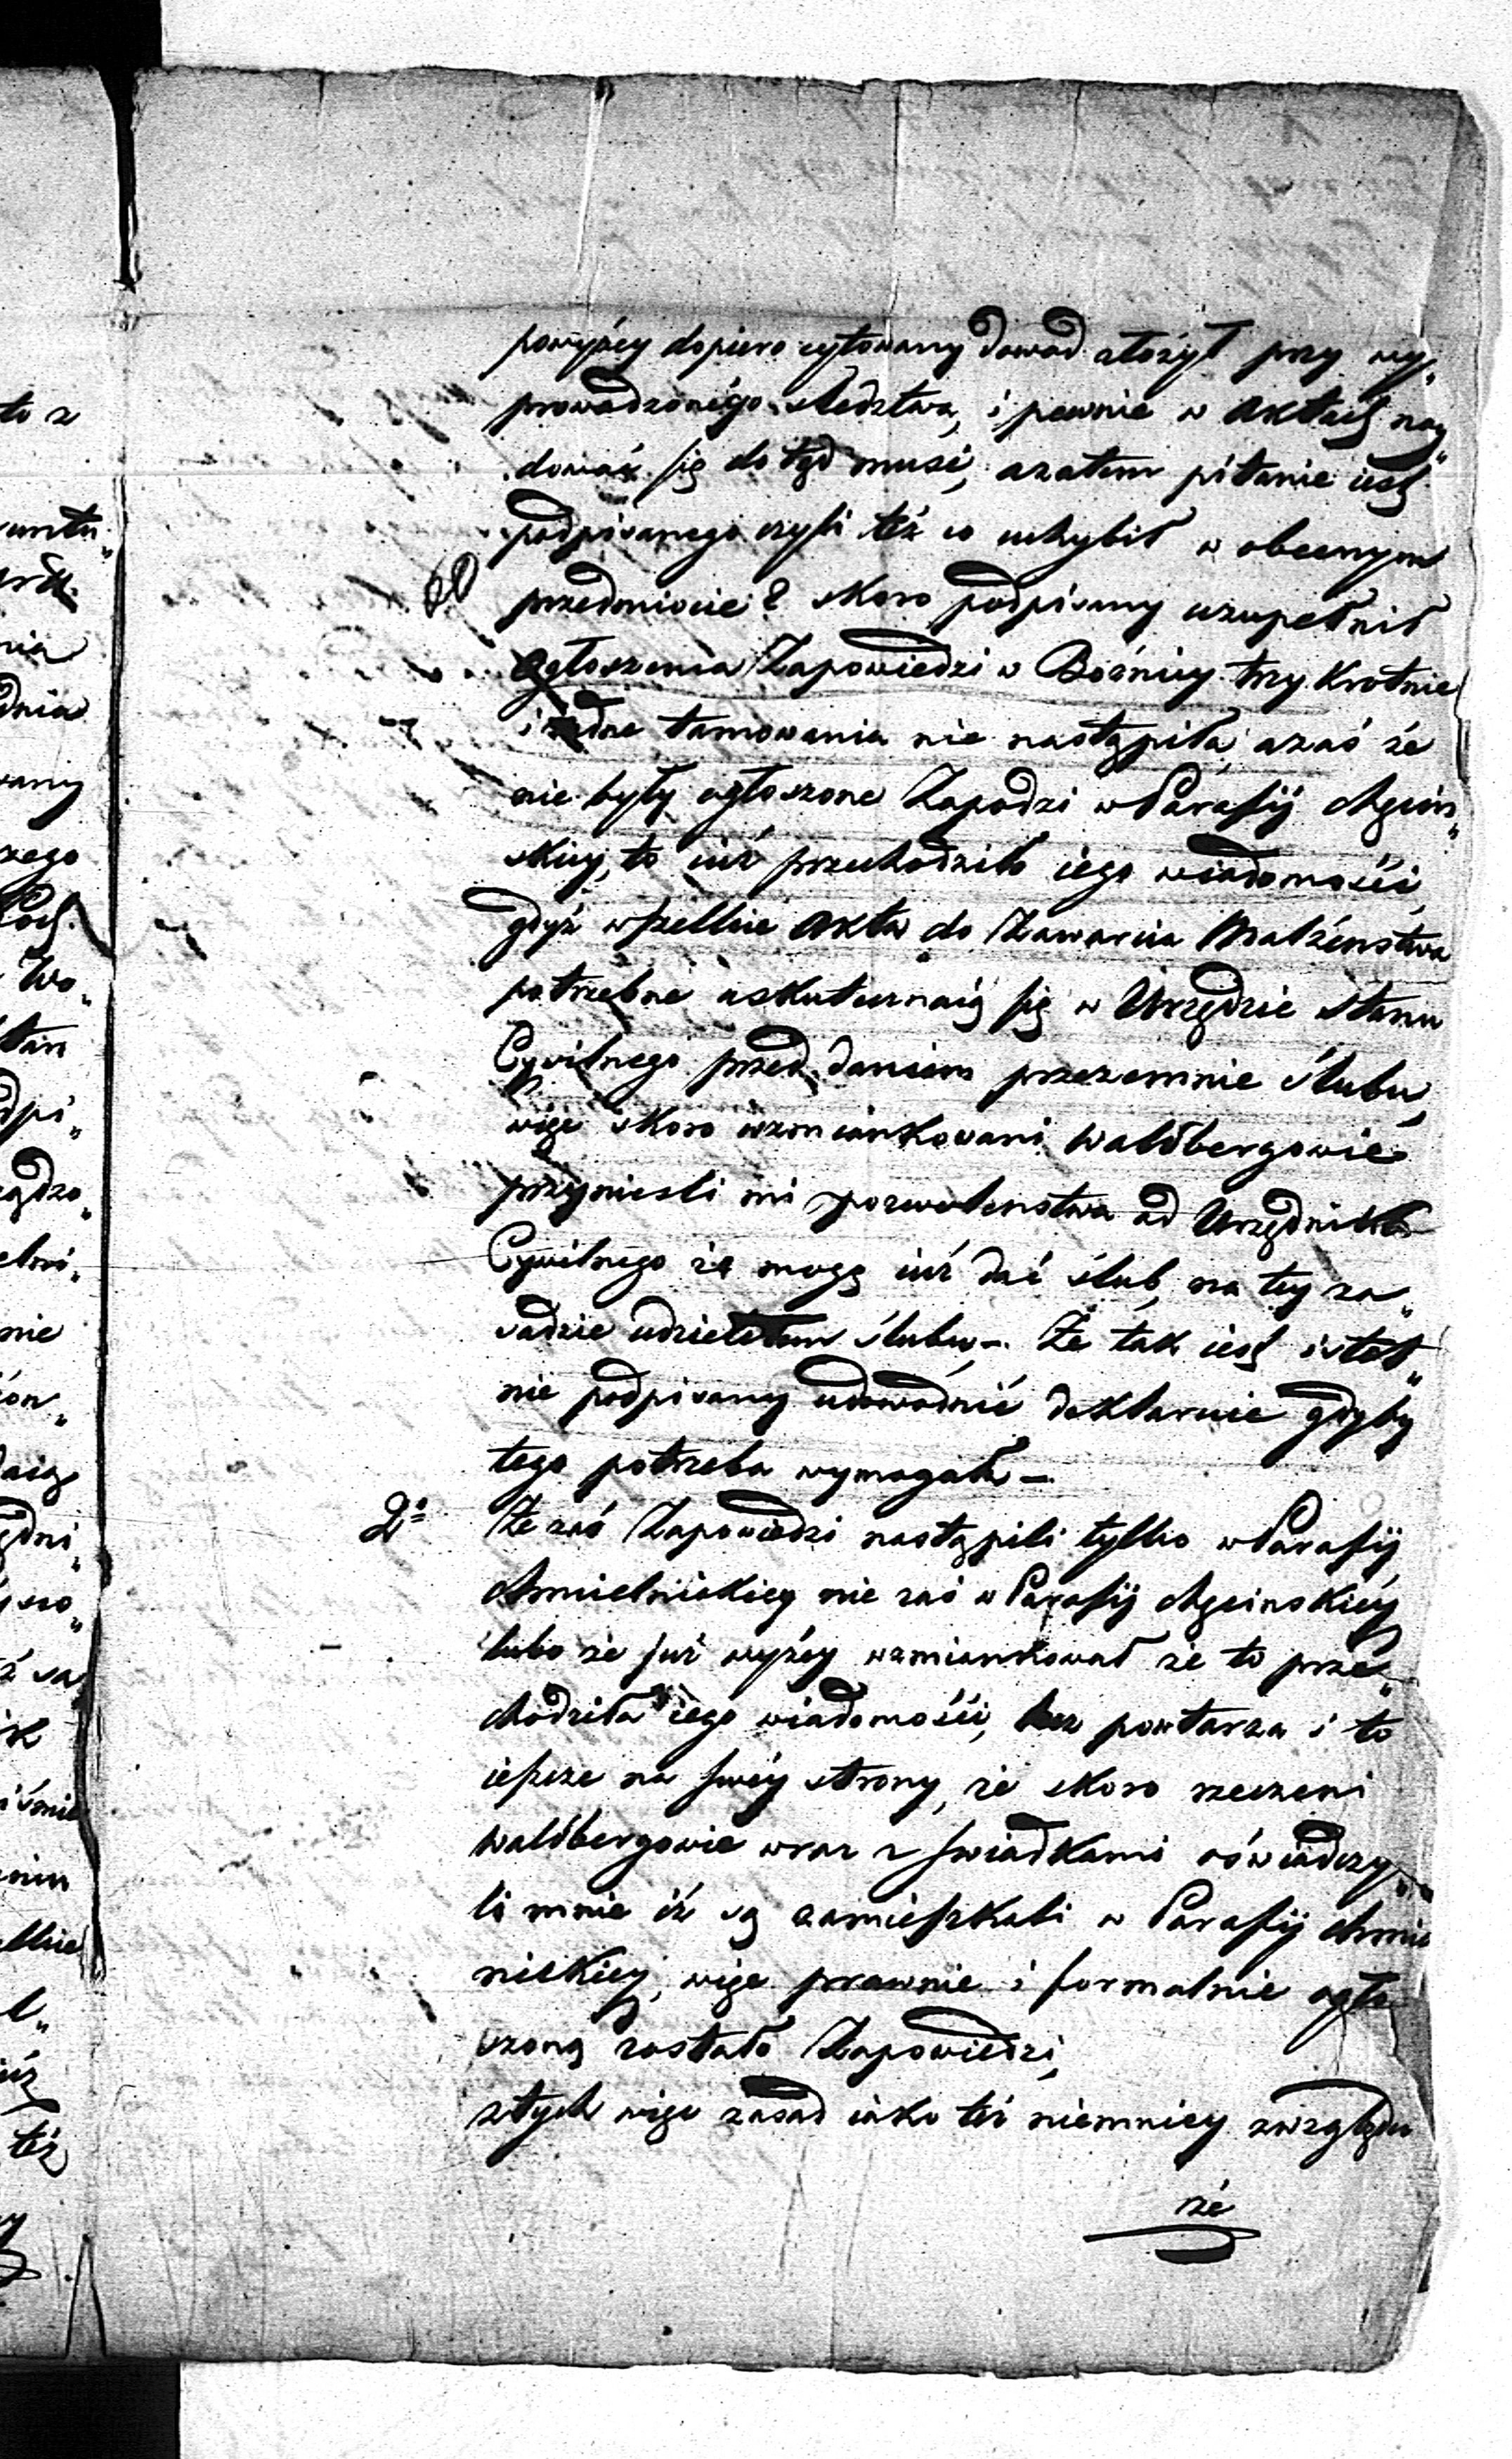 powyżey dopiero cytowany dowod złożył przy wy„
prowadzonego sledztwa, i pewnie w Aktach nay„
dować się dotąd musi, azatem pitanie iest
podpisanego czyli téż co uchybił w obecnym
przedmiocie? skoro podpisany uzupełnił
ogłoszenia Zapowiedzi w Bożnicy trzy Krotnie
i żadne tamowania nie nastąpiła, azaś że
nie były ogłoszone Zapodzi w Parafij Chęcin„
skiey, to iuż przechodziło iego wiadomości,
gdyż wszelkie Akta do Zawarcia Małżenstwa
potrzebne uskuteczniaią się w Urzędzie Stanu
Cywilnego przed daniem przezemnie ślubu,
więc skoro wzmiankowani Waldbergowie
przyniesli mi pozwolenstwa od Urzędnika
Cywilnego że mogę iuż dać ślub, na tey za„
sadzie udzieliłem ślubu –. Że tak iest istot„
nie podpisany udowodnić deklaruie gdyby
tego potrzeba wymagała –
2° Że zaś Zapowiedzi nastąpili tylko w Parafij
Chmielnickiey nie zaś w Parafij Chęcinskiéy
lubo że już wyżey wzmiankował że to prze„
chodziła iego wiadomości, lecz powtarza i to
ieszcze na swéy strony, że skoro rzeczeni
Waldbergowie wraz z swiadkami oświadczy„
li mnie iż są zamieszkali w Parafij Chmie
nickiey, więc prawnie i formalnie ogło
szoną zostało Zapowiedzi,
ztych więc zasad iako téż niemniey zwzględu
że